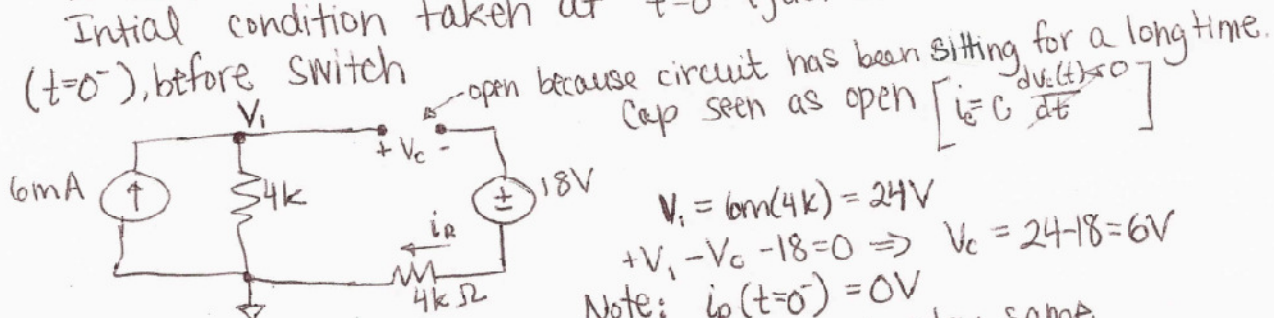 Intial condition taken at t=0
(t=0⁻), before switch
open because circuit has been sitting for a long time.
Cap seen as open [i_c = C dv_c(t)/dt → 0]
V₁
+ Vc -
6mA
4k
18V
±
i_R
4kΩ
V₁ = 6m(4k) = 24V
+V₁ - Vc - 18 = 0 ⇒ Vc = 24-18 = 6V
Note: i_R(t=0⁻) = 0V
same